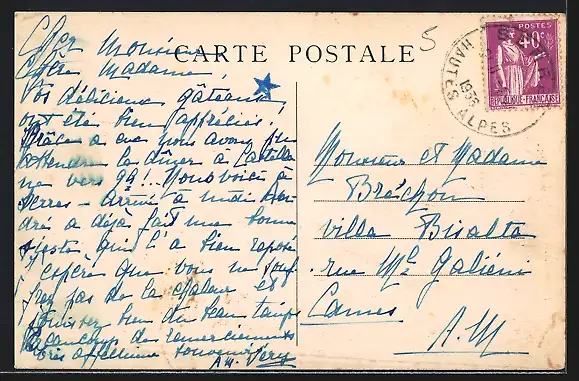 CARTE POSTALE
5
Cher Monsieur
Chère Madame,
Vos délicieux gâteaux,
ont été bien appréciés!
Grâce à eux nous avons pu
attendre le dîner à
vers 9h!.. Nous voici à
Serres – Arrivés à midi An-
dré a déjà fait une bonne
sieste qui l'a bien reposé
J'espère que vous ne souf-
frez pas de la chaleur et
jouissez bien du beau temps
Beaucoup de remerciements
très affectueux souvenirs
POSTES
40c
REPUBLIQUE FRANÇAISE
1936
HAUTES ALPES
Monsieur et Madame
Bréchon
Villa Bisalta
rue Mal Galiéni
Cannes
A.M